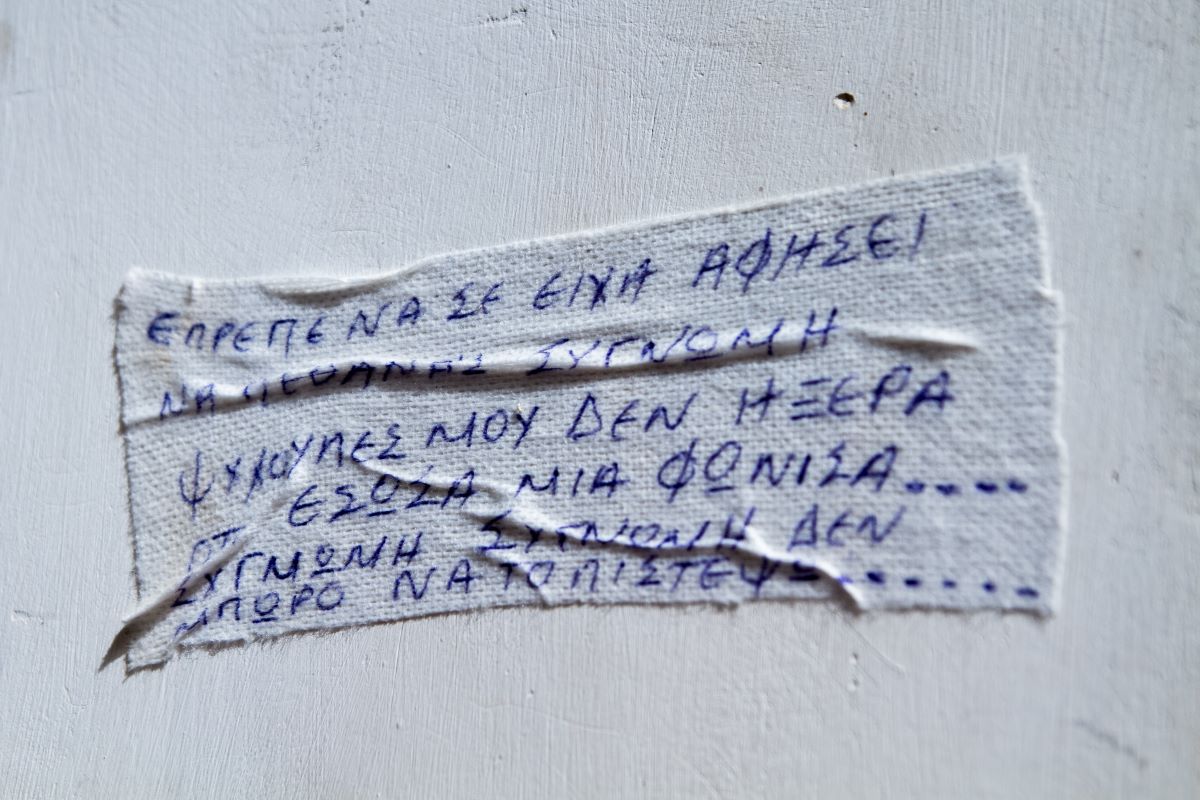 ΕΠΡΕΠΕ ΝΑ ΣΕ ΕΙΧΑ ΑΦΗΣΕΙ
ΝΑ ΠΕΘΑΝΗΣ ΣΥΓΝΩΜΗ
ΜΟΥ ΔΕΝ ΗΞΕΡΑ
ΟΤΙ ΕΣΩΣΑ ΜΙΑ ΦΩΝΙΣΑ....
ΣΥΓΜΩΜΗ ΣΥΓΝΩΜΗ ΔΕΝ
ΜΠΩΡΟ ΝΑ ΤΟ ΠΙΣΤΕΨΩ......